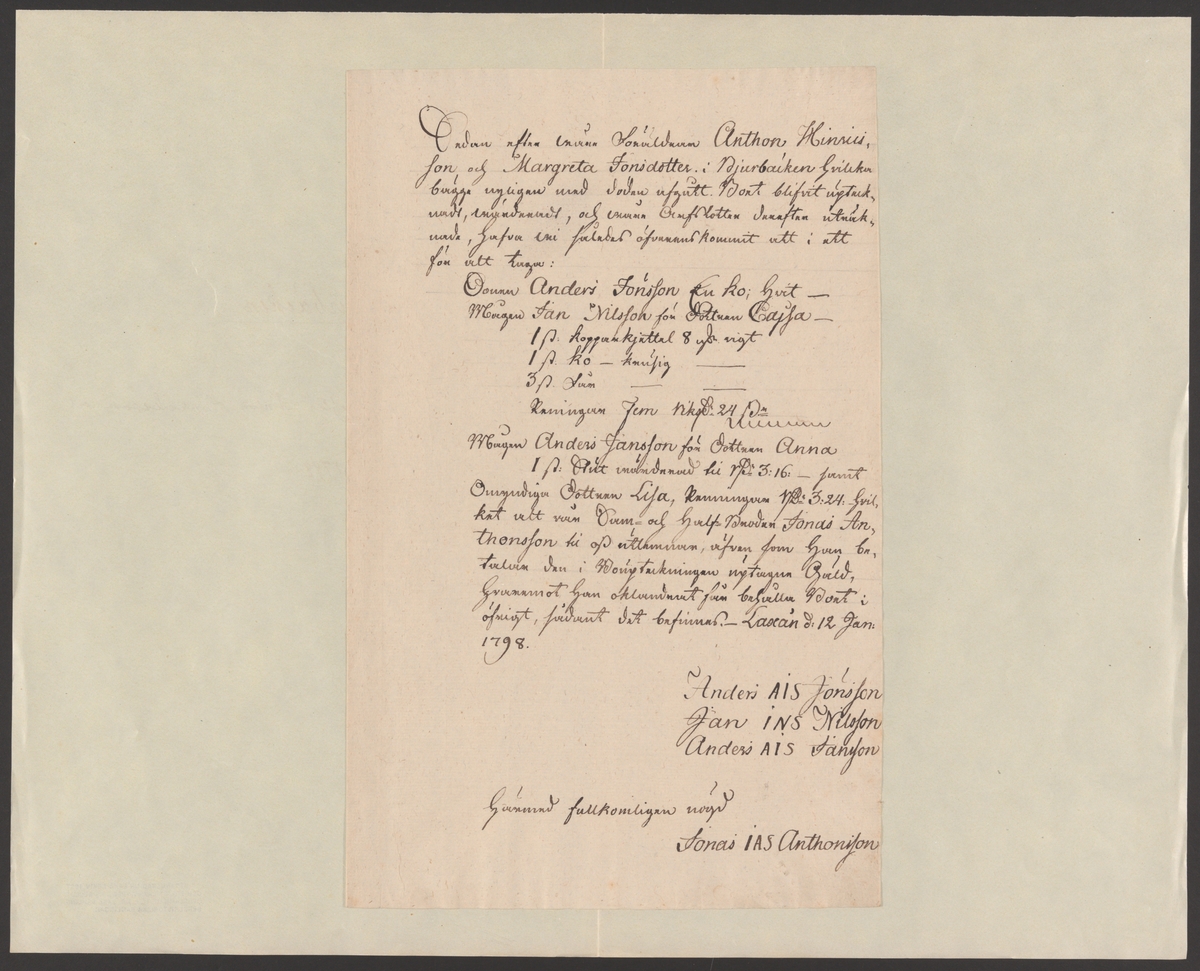 Sedan efter wåre Föräldrar Anthon Hinrics-
son och Margreta Jonsdotter i Djurbäcken hvilka
bägge nyligen med döden afgått. Boet blifvit upteck-
nadt, wärderadt, och wåre Arfslotter derefter uträk-
nade, hafva wi således öfverenskommit att i ett
för allt taga:
Sonen Anders Jönsson En ko; hvit —
Magen Jan Nilsson för Dottren Cajsa —
1 st: kopparkjettel 8 vigt
1 st. ko — krusig —
3 st. Får — —
Penningar Fem 24
Magen Anders Jansson för Dottren Anna
1 st: Stut wärderad til 3:16: — samt
Omyndiga Dottren Lisa, Penningar 3:24: hvil-
ket alt vår Sam- och Half-Broder Jonas An-
thonsson til oss utlemnar, äfven som Han be-
talar den i Boupteckningen uptagne Gäld,
hvaremot Han oklandrat får behålla Boet i
öfrigt, sådant det befinnes. — Laxån d: 12 Jan:
1798.
Anders AIS Jönsson
Jan INS Nilsson
Anders AIS Jansson
Härmed fullkomligen nögd
Jonas IAS Anthonsson